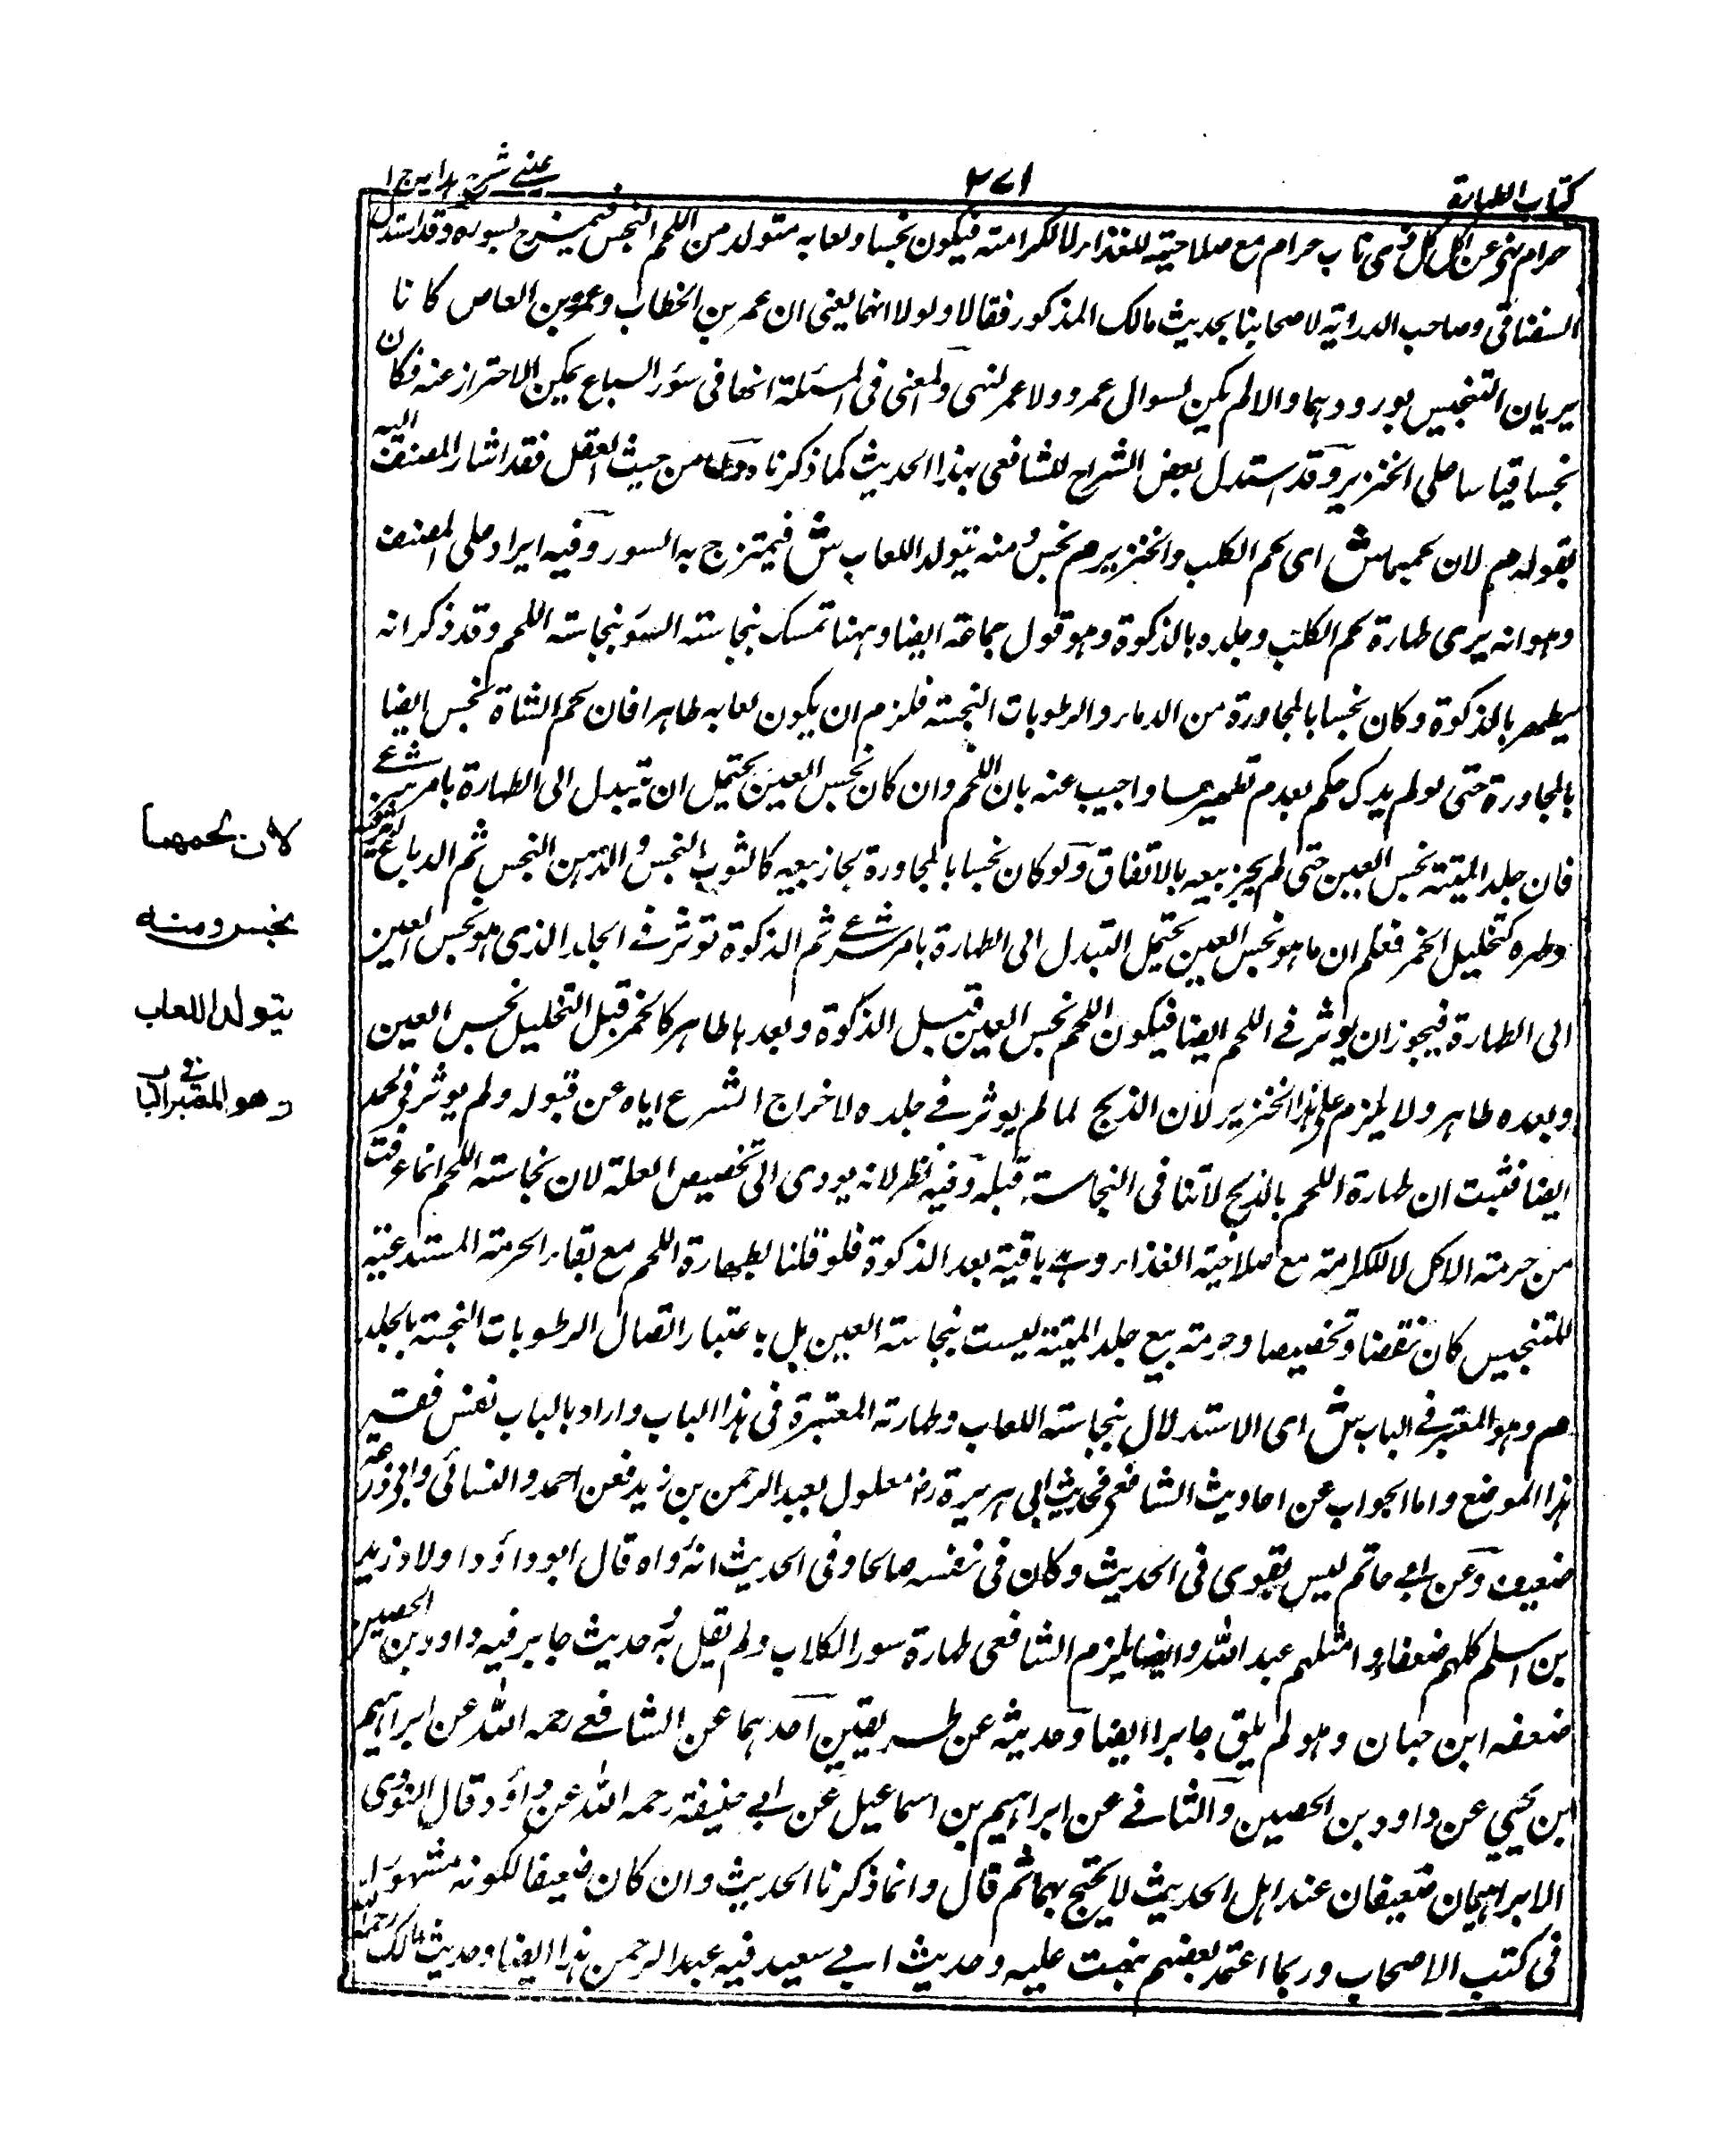 كتاب الطهارة
٢٧١
عینی شرح ہدایہ ج ١
حرام نهى عن اكل كل ذى ناب حرام مع صلاحيته للغذاء لا لكرامته فيكون نجسا ولعابه متولد من اللحم النجس فيمتزج بسوره وقد استدل
السغناقى وصاحب الدراية لاصحابنا بحديث مالك المذكور فقالا ولولا انهما يعنى ان عمر بن الخطاب وعمرو بن العاص كانا
يريان التنجيس بورودهما والا لم يكن لسوال عمرو ولا عمر لنهى والمعنى فى المسئلة انها فى سؤر السباع يمكن الاحتراز عنه فكان
نجسا قياسا على الخنزير وقد استدل بعض الشراح للشافعى بهذا الحديث كما ذكرنا من حيث العقل فقد اشار المصنف اليه
بقوله م لان لحمهما ش اى لحم الكلب والخنزير م نجس ومنه يتولد اللعاب ش فيمتزج به السور وفيه ايراد على المصنف
وهو انه يرى طهارة لحم الكلب وجلده بالذكوة وهو قول جماعة ايضا وههنا تمسك بنجاسته السؤ بنجاسته اللحم وقد ذكر انه
يطهر بالذكوة وكان نجسا بالمجاورة من الدماء والرطوبات النجسة فلزم ان يكون لعابه طاهرا فان لحم الشاة نجس ايضا
بالمجاورة حتى لو لم يذك حكم بعدم تطهيرها واجيب عنه بان اللحم وان كان نجس العين يحتمل ان يتبدل الى الطهارة بامر شرعى
فان جلد الميتة نجس العين حتى لم يجز بيعه بالاتفاق ولو كان نجسا بالمجاورة لجاز بيعه كالثوب النجس والدهن النجس ثم الدباغ
وطهره كتخليل الخمر فعلم ان ما هو نجس العين يحتمل التبدل الى الطهارة بامر شرعى ثم الذكوة توثر فى الجلد الذى هو نجس العين
الى الطهارة فيجوز ان يوثر فى اللحم ايضا فيكون اللحم نجس العين قبل الذكوة وبعدها طاهر كالخمر قبل التخليل نجس العين
وبعده طاهر ولا يلزم على هذا الخنزير لان الذبح لما لم يوثر فى جلده لاخراج الشرع اياه عن قبوله ولم يوثر فى لحمه
ايضا فثبت ان طهارة اللحم بالذبح لاتنافى النجاسة قبله وفيه نظر لانه يودى الى تخصيص العلة لان نجاسته اللحم انما عرفت
من حرمته الاكل لا للكرامة مع صلاحية الغذاء وهى باقية بعد الذكوة فلو قلنا بطهارة اللحم مع بقاء الحرمة المستدعية
للتنجيس كان نقضا وتخصيصا وحرمته بيع جلد الميتة ليست بنجاسته العين بل باعتبار اتصال الرطوبات النجسة بالجلد
م وهو المعتبر فى الباب ش اى الاستدلال بنجاسته اللعاب وطهارته المعتبرة فى هذا الباب واراد بالباب نفس
هذا الموضع واما الجواب عن احاديث الشافعى فحديث ابى هريرة رض معلول بعبد الرحمن بن زيد فعن احمد والنسائى وابى زرعة
ضعيف وعن ابى حاتم ليس بقوى فى الحديث وكان فى نفسه صالحا وفى الحديث انه واه قال ابو داؤد اولاد زيد
بن اسلم كلهم ضعفاء وامثلهم عبد الله وايضا يلزم الشافعى طهارة سور الكلاب ولم يقل به حديث جابر فيه داود بن الحصين
ضعفه ابن حبان وهو لم يلق جابرا ايضا وحديثه عن طريقين احدهما عن الشافعى رحمه الله عن ابراهيم
ابن يحيى عن داود بن الحصين والثانى عن ابراهيم بن اسماعيل عن ابى حنيفة رحمه الله عن داؤد قال النووى
الابراهيمان ضعيفان عند اهل الحديث لا يحتج بهما ثم قال وانما ذكرنا الحديث وان كان ضعيفا لكونه مشهورا
فى كتب الاصحاب وربما اعتمد بعضهم فنبهت عليه وحديث ابى سعيد فيه عبد الرحمن هذا ايضا وحديث مالك رحمه الله
لان لحمهما
نجس ومنه
يتولد اللعاب
وهو المعتبر فى الباب